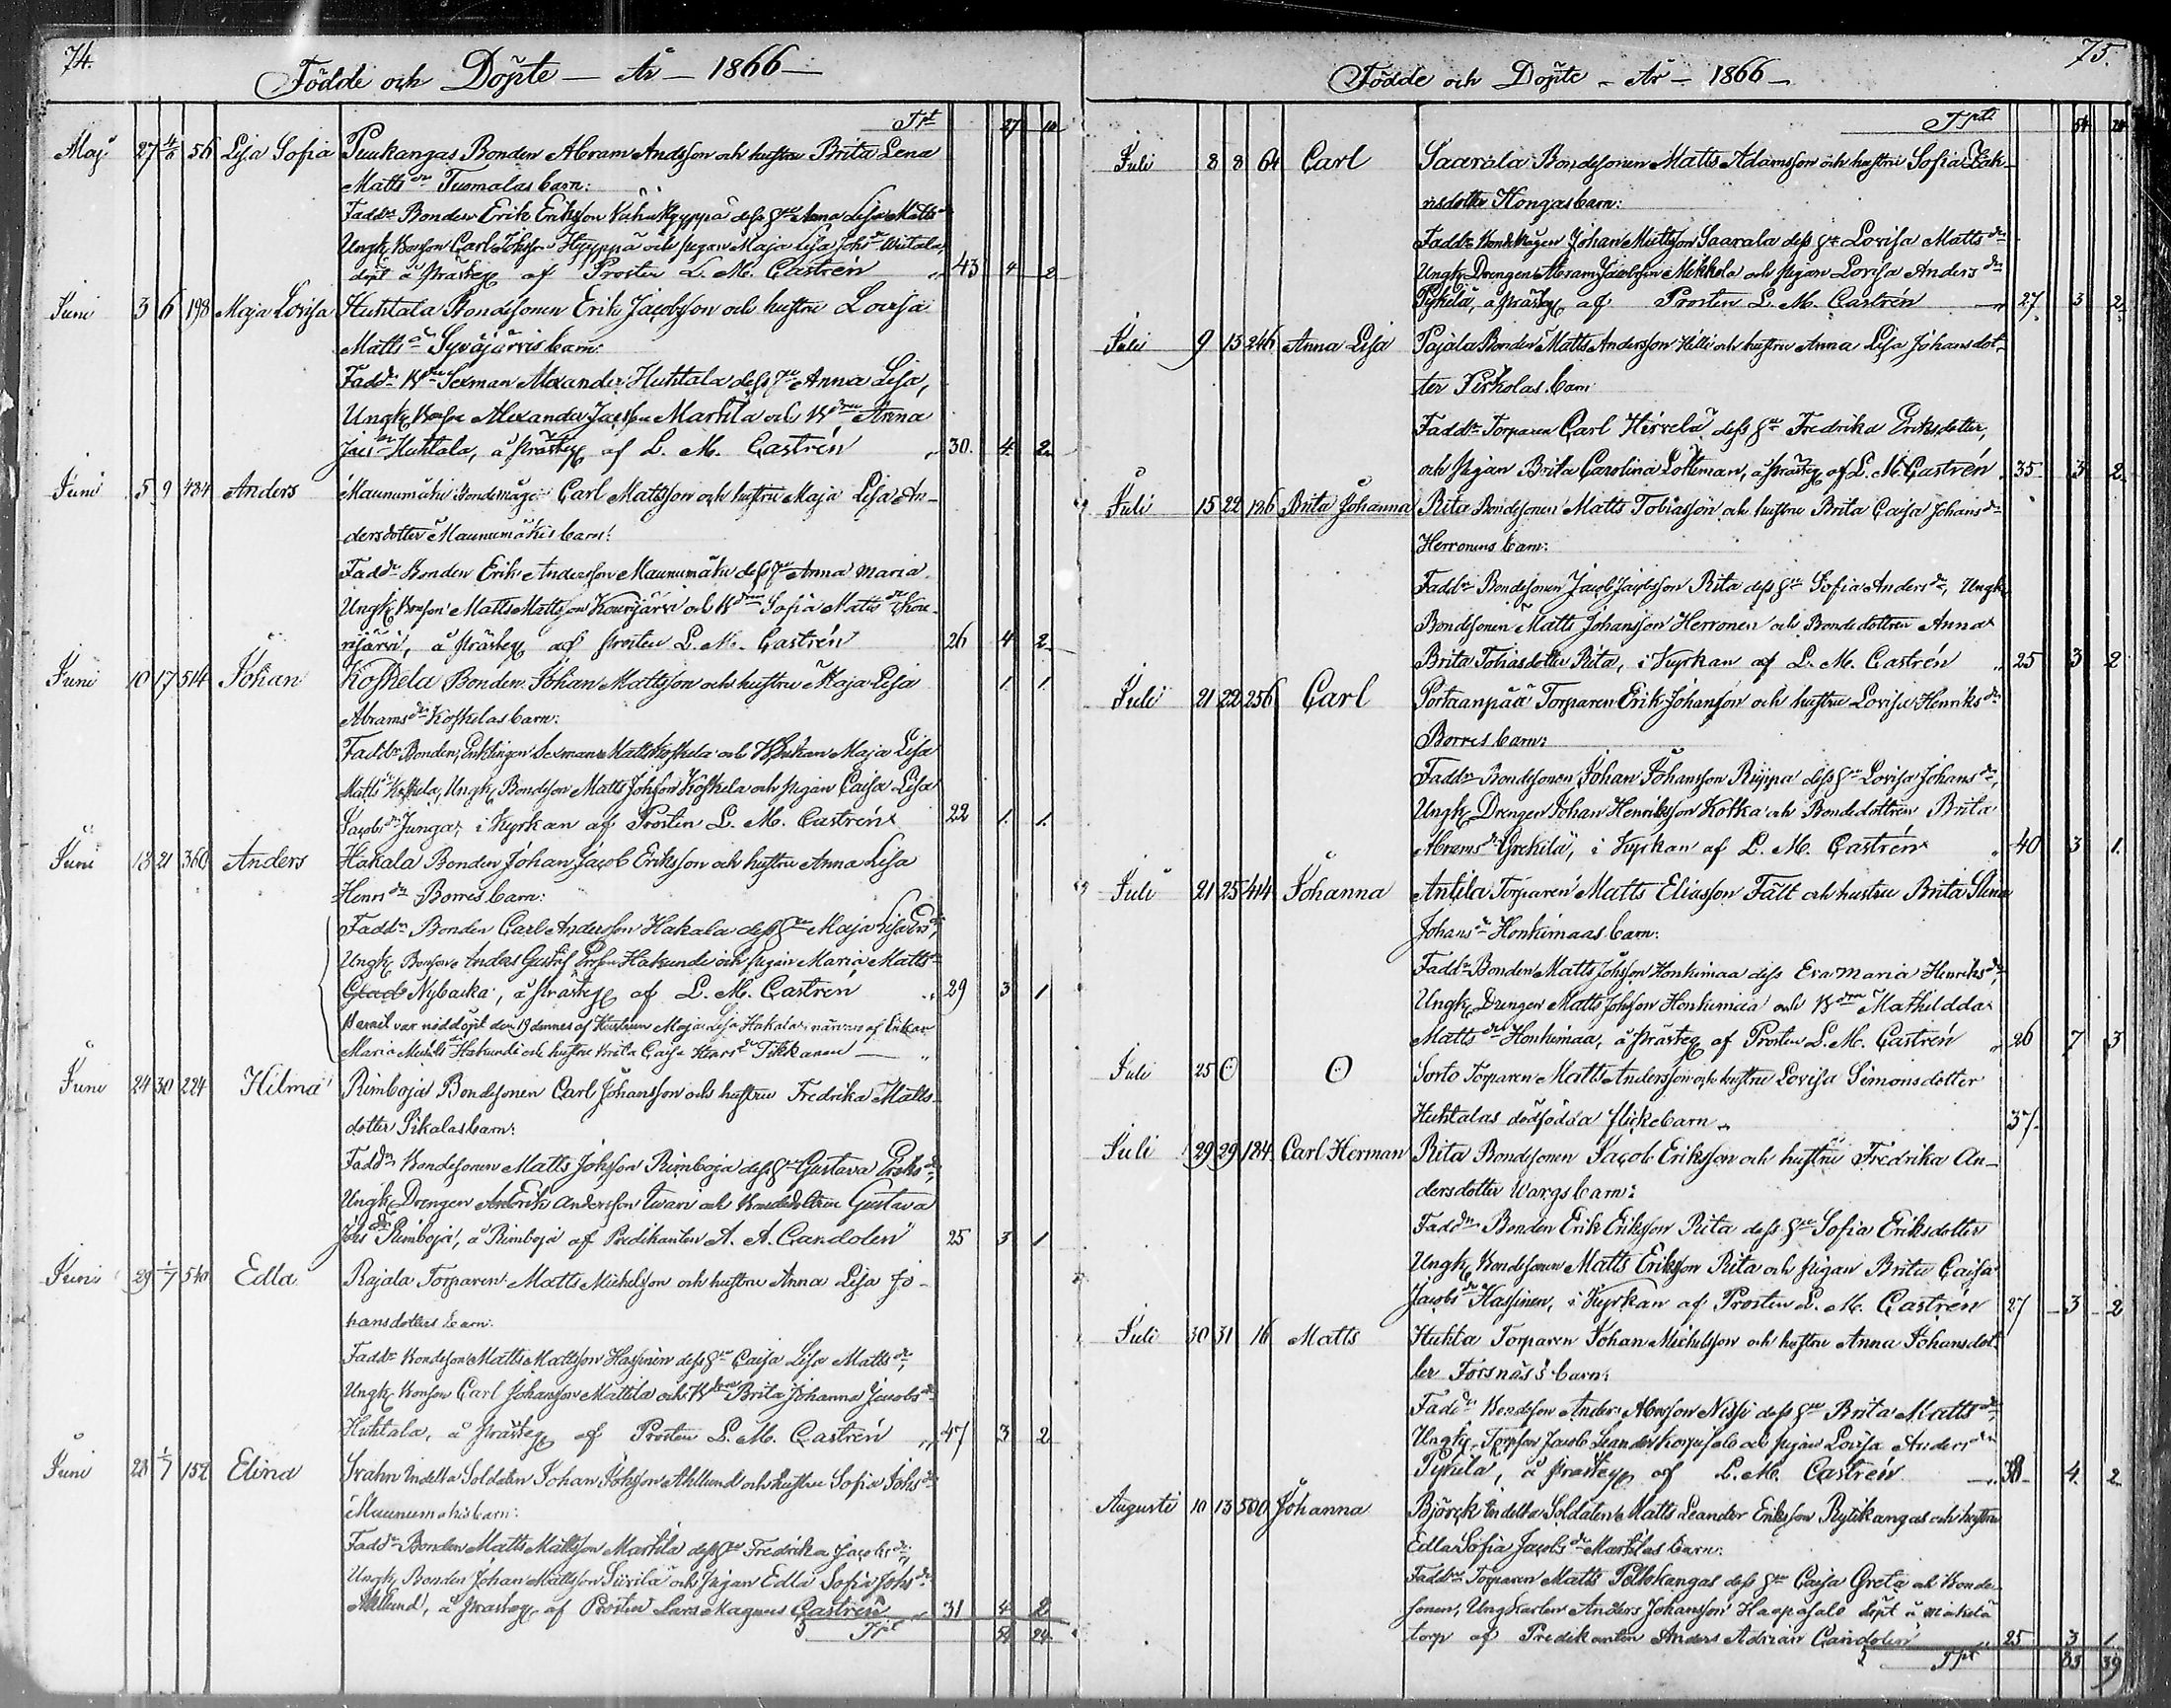 74.
Födde och Döpte — År — 1866 —
Tpt 27 10
Maj 27 4/6 56 Lisa Sofia Puukangas Bonden Abram Andsson och hustru Brita Lena
Matts dr Tuomalas barn:
Fadd:r Bonden Erik Eriksson dess h:u Anna Lisa Matts
Ungk. Bonson Carl Johsson Hyyppä och pigan Maja Lisa Johs dr Wiitala,
döpt å prästeg. af Prosten L. M. Castrén " 43 4 2
Juni 3 6 198 Maja Lovisa Huhtala Bondesonen Erik Jacobsson och hustru Lovisa
Matts dr Syväjärvis barn:
Fadd:r Sexman Alexander Huhtala dess h:u Anna Lisa,
Ungk. Bonson Alexander Jacsson Martila och B dtren Anna
Jacs dr Huhtala, å prästeg. af L. M. Castrén " 30. 4. 2
Juni 5 9 484 Anders Maunumäki Bondemågen Carl Mattsson och hustru Maja Lisa An-
dersdotter Maunumäkis barn:
Fadd:r Bonden Erik Andersson Maunumäki dess h:u Anna Maria.
Ungk. Bonson Matts Mattsson Kourijärvi och B dtren Sofia Matts dr Kou-
rijärvi, å prästeg. af prosten L. M. Castrén 26 4 2
Juni 10 17 514 Johan Koskela Bonden Johan Mattsson och hustru Maja Lisa 1. 1.
Abrams dr Koskelas barn:
Fadd:r Bonden, Enklingen Sexman Matts Koskela och Maja Lisa
Matts dr Koskela, Ungk. Bondeson Matts Johsson Koskela och pigan Caisa Lisa
Jacobs dr Junga, i Kyrkan af Prosten L. M. Castrén 22 1. 1.
Juni 18 21 360 Anders Hakala Bonden Johan Jacob Eriksson och hustru Anna Lisa
Henrs dr Borres barn:
Fadd:r Bonden Carl Andersson Hakala dess h:u Maja Lisa Ers dr,
Ungk. Bonson Anders Gustaf Ersson Hakunti och pigan Maria Matts dr
Nybacka, å prästeg. af L. M. Castrén " 29 3 1
Barnet var nöddöpt den 19 dennes af Hustrun Maja Lisa Hakala i närvaro af Enkan
Maria Michils dr Hakunti och hustru Brita Caisa Tikkanen — "
Juni 24 30 224 Hilma Rimboja Bondesonen Carl Johansson och hustru Fredrika Matts-
dotter Pikalas barn:
Fadd:r Bondesonen Matts Johsson Rimboja dess h:u Gustava Eriks dr,
Ungk. Drengen Erik Andersson Iwari och Bondedottren Gustava
Johs dr Rimboja, å Rimboja af Predikanten A. A. Candolin 25 3 1
Juni 29 1/7 540 Edla Rajala Torparen Matts Michelsson och hustru Anna Lisa Jo-
hansdotters barn:
Fadd:r Bondeson Matts Mattsson Haspinen dess h:u Caisa Lisa Matts dr,
Ungk. Bonson Carl Johansson Mattila och B dtren Brita Johanna Jacobs dr
Huhtala, å prästeg. af Prosten L. M. Castrén " 47 3 2
Juni 28 1/7 152 Elina Svahn Indelta Soldaten Johan Johsson Ahllund och hustru Sofia Johs dr
Maunumäkis barn:
Fadd:r Bonden Matts Mattsson Martila dess h:u Fredrika Jacobs dr,
Ungk. Bonden Johan Mattsson Siirilä och pigan Edla Sofia Johs dr
Ahllund, å prästeg. af Prosten Lars Magnus Castrén " 31 4 2
Tpt 54 24
75.
Födde och Döpte — År — 1866 —
Tpt 54 24
Juli 8 8 64 Carl Saarala Bondesonen Matts Adamsson och hustru Sofia Zak-
risdotter Hongas barn:
Fadd:r Bondemågen Johan Mattsson Saarala dess h:u Lovisa Matts dr
Ungk. Drengen Abram Jacobsson Mikkola och pigan Lovisa Anders dr
Pyhälä, å prästeg. af Prosten L. M. Castrén " 27. 3 2
Juli 9 15 246 Anna Lisa Pajala Bonden Matts Andersson Hilli och hustru Anna Lisa Johansdot-
ter Pirkolas barn:
Fadd:r Torparen Carl Hirvelä dess h:u Fredrika Eriksdotter,
och pigan Brita Carolina Lottman, å prästeg. af L. M. Castrén " 35 3 2
Juli 15 22 126 Brita Johanna Rita Bondesonen Matts Tobiasson och hustru Brita Caisa Johans dr
Herronens barn:
Fadd:r Bondesonen Jacob Jacobsson Rita dess h:u Sofia Anders dr, Ungk.
Bondesonen Matts Johansson Herronen och Bondedottren Anna
Brita Tobiasdotter Rita, i Kyrkan af L. M. Castrén " 25 3 2
Juli 21 22 256 Carl Portaanpää Torparen Erik Johansson och hustru Lovisa Henriks dr
Borres barn:
Fadd:r Bondesonen Johan Johansson Riippa dess h:u Lovisa Johans dr,
Ungk. Drengen Johan Henriksson Kotka och Bondedottren Brita
Abrams dr Grekilä, i Kyrkan af L. M. Castrén " 40 3 1.
Juli 21 25 414 Johanna Antila Torparen Matts Eliasson Fält och hustru Brita Stina
Johans dr Honkimaas barn:
Fadd:r Bonden Matts Johsson Honkimaa dess Eva Maria Henriks dr,
Ungk. Drengen Matts Johsson Honkimaa och B dtren Mathildda
Matts dr Honkimaa, å prästeg. af Prosten L. M. Castrén " 26 7 3
Juli 25 O O Sorto Torparen Matts Andersson och hustru Lovisa Simonsdotter
Huhtalas dödfödda flickebarn. 37.
Juli 29 29 184 Carl Herman Rita Bondesonen Jacob Eriksson och hustru Fredrika An-
dersdotter Wargs barn:
Fadd:r Bonden Erik Eriksson Rita dess h:u Sofia Eriksdotter
Ungk. Bondesonen Matts Eriksson Rita och pigan Brita Caisa
Jacobs dr Haspinen, i Kyrkan af Prosten L. M. Castrén 27 3 2
Juli 30 31 16 Matts Huhta Torparen Johan Michelsson och hustru Anna Johansdot-
ter Forsnäs's barn:
Fadd:r Bondeson Anders Abrsson Nissi dess h:u Brita Matts dr,
Ungk. Torpson Jacob Leander och pigan Lovisa Anders dr
Pyhälä, å prästeg. af L. M. Castrén " 38 4. 2
Augusti 10 13 500 Johanna Björck Indelta Soldaten Matts Leander Eriksson Rytikangas och hustru
Edla Sofia Jacobs dr Martilas barn:
Fadd:r Torparen Matts Peltokangas dess h:u Caisa Greta och Bonde-
sonen, Ungkarlen Anders Johansson Haapasalo döpt å Mäkelä
torp af Predikanten Anders Adrian Candolin " 25 3 1
Tpt 83 39